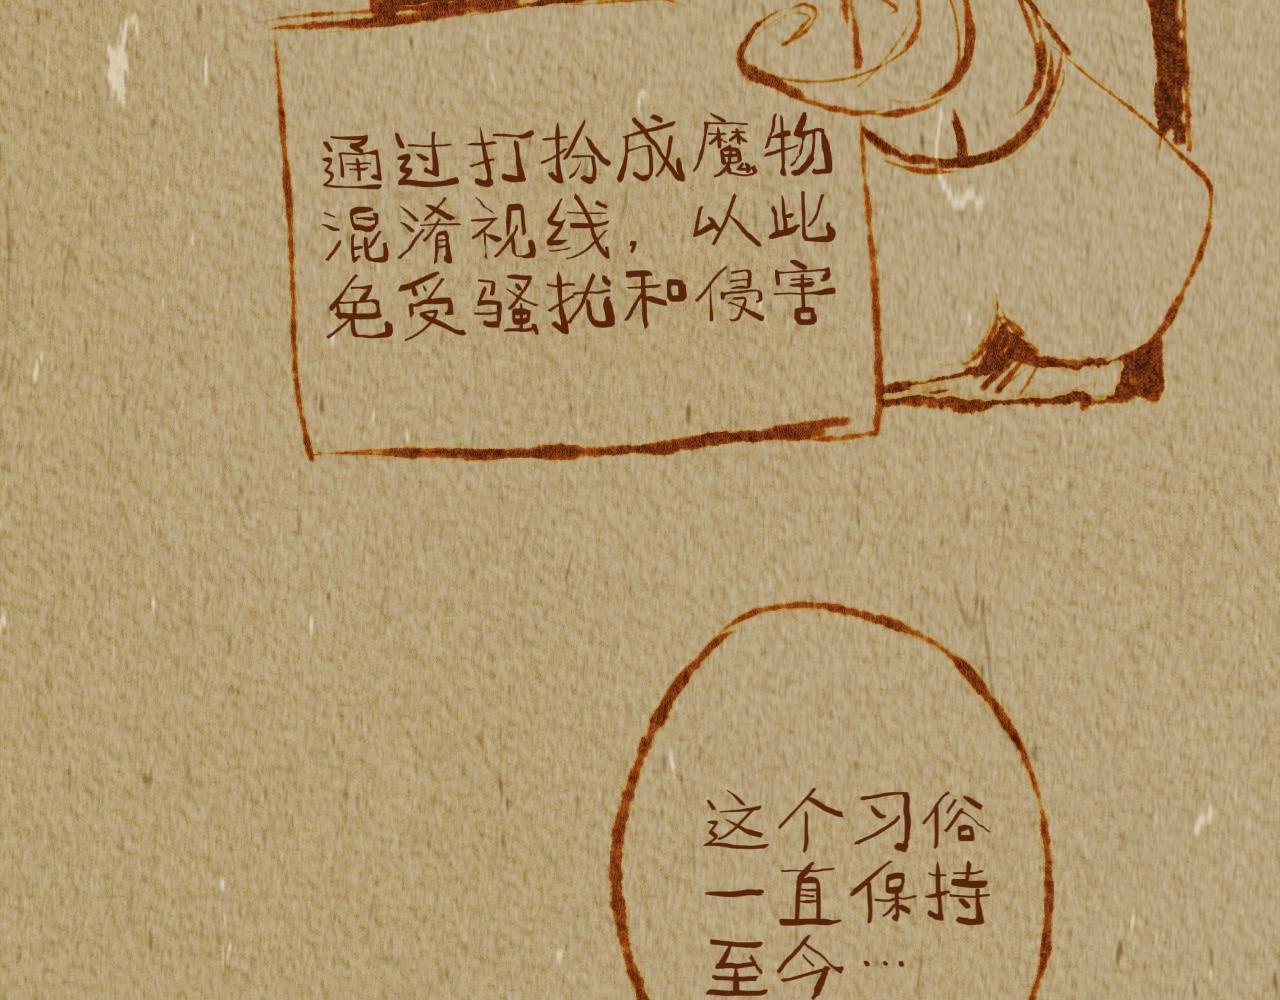 通过打扮成魔物
混淆视线，以此
免受骚扰和侵害
这个习俗
一直保持
至今…